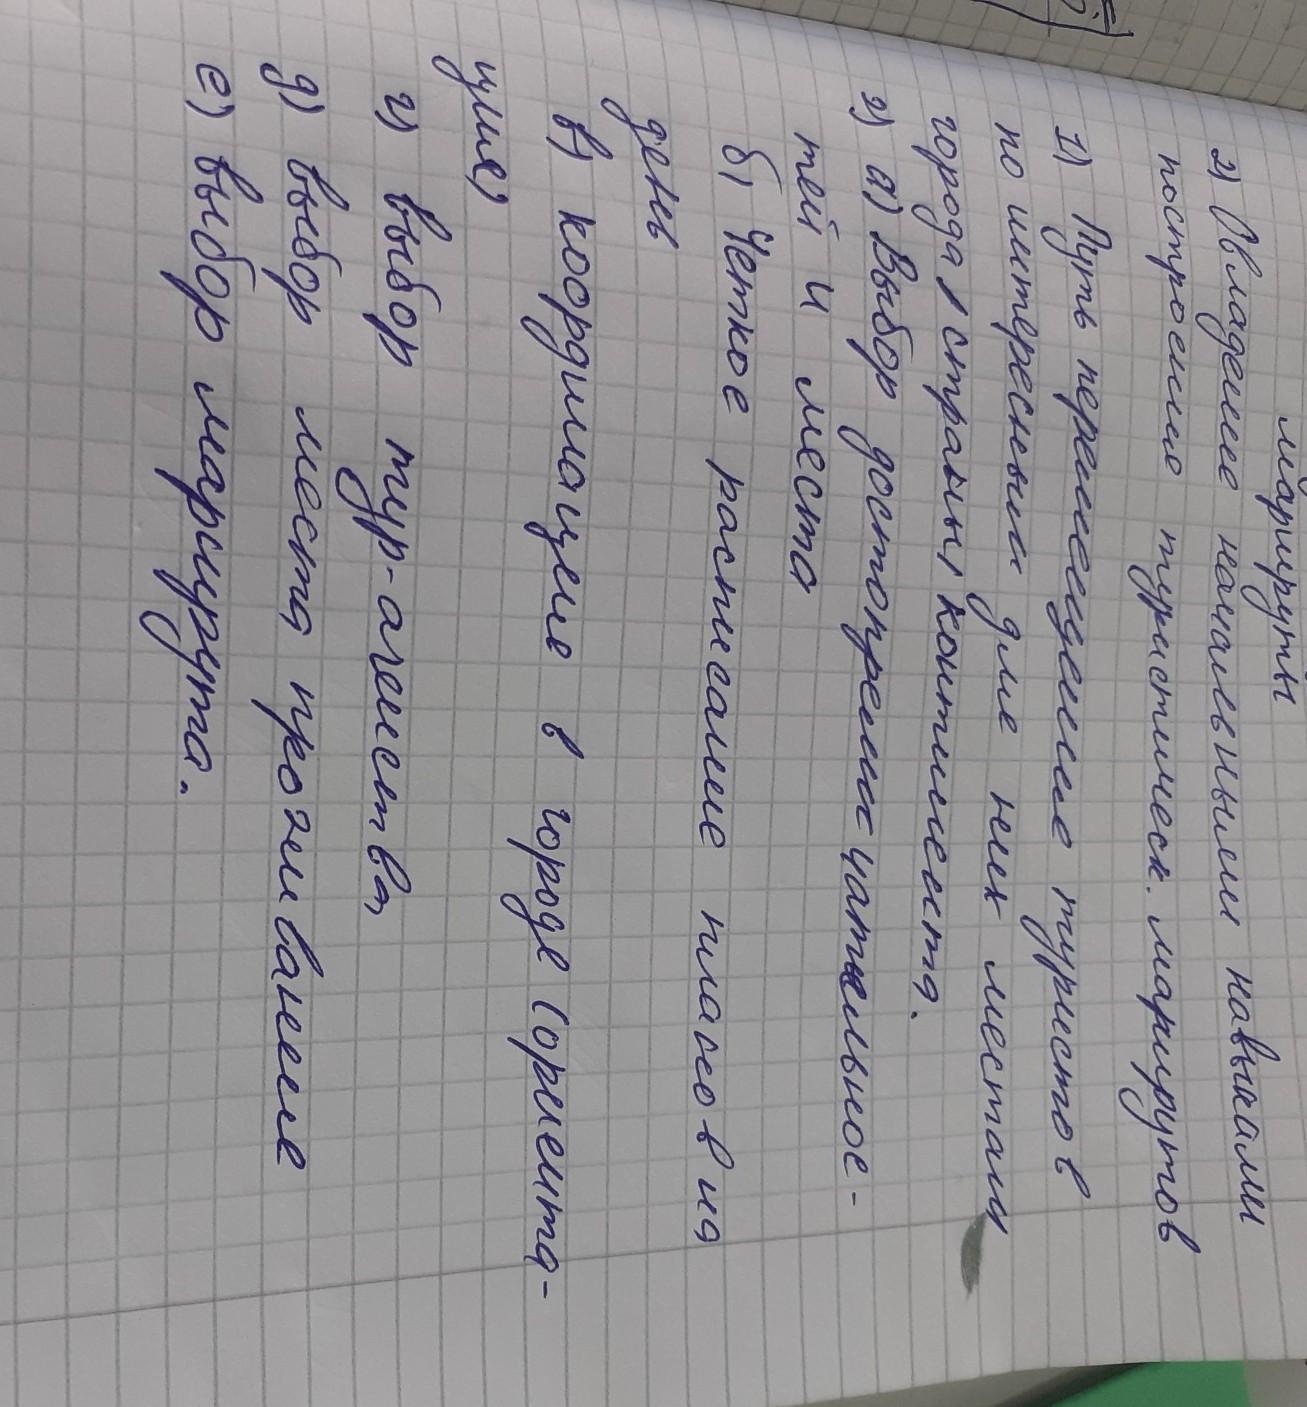 маршруты
2) Овладение начальными навыками
построение туристическ. маршрутов
1) Путь перемещение туристов
по интересным для них местам
города, страны, континента.
2) а) Выбор достопремечательнос-
тей и места
б) Четкое расписание планов на
день
в) координацию в городе (ориента-
цию)
г) выбор тур-агенства,
д) выбор места проживание
е) выбор маршрута.